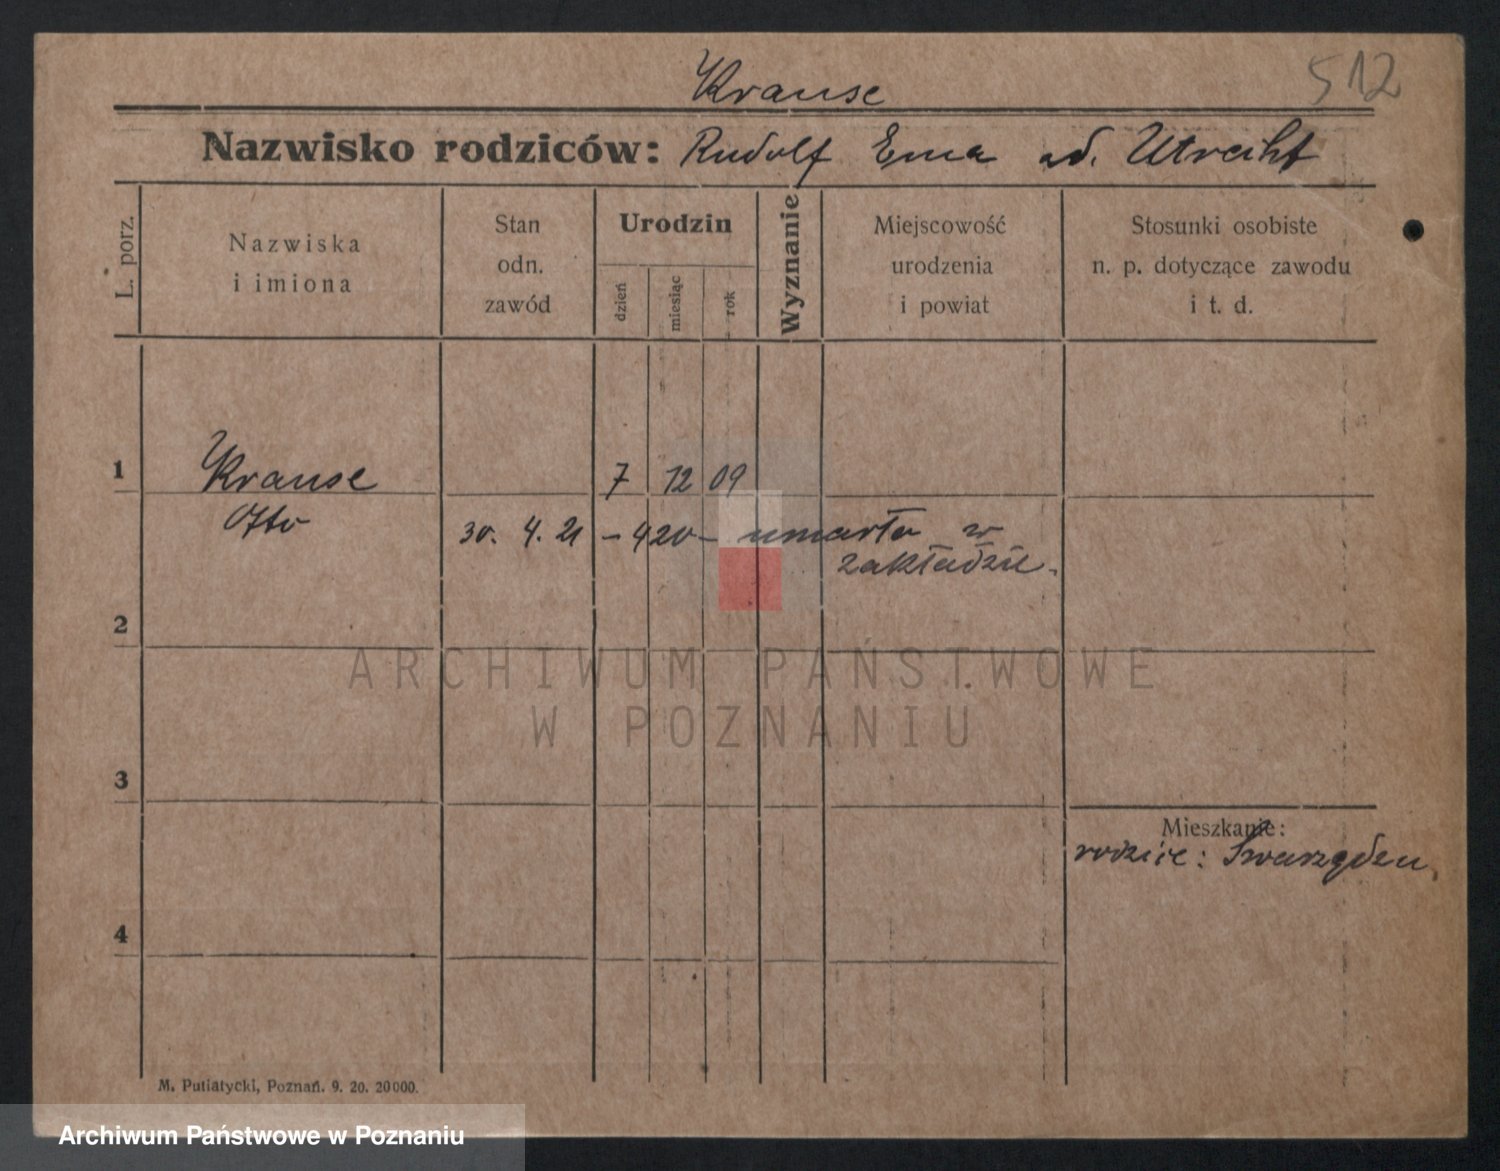 Krause
512
Nazwisko rodziców: Rudolf Ema od. Utrecht
L. porz.
Nazwiska
i imiona
Stan
odn.
zawód
Urodzin
dzień
miesiąc
rok
Wyznanie
Miejscowość
urodzenia
i powiat
Stosunki osobiste
n. p. dotyczące zawodu
i t. d.
1
Krause 7 12 09
Otto 30. 4. 21 - 420 - umarła w
zakładzie.
2
ARCHIWUM PAŃSTWOWE
W POZNANIU
3
Mieszkanie:
rodzice: Swarzędzu.
4
M. Putiatycki, Poznań. 9. 20. 20000.
Archiwum Państwowe w Poznaniu